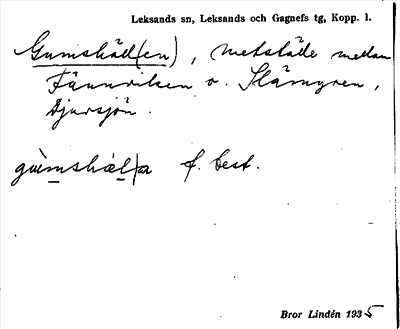 Leksands sn, Leksands och Gagnefs tg, Kopp. l.
Gumshäll(en), metställe mellan
Fännviken o. Slämyren,
Djursjön.
gùmshæ̀l/a f. best.
Bror Lindén 1935